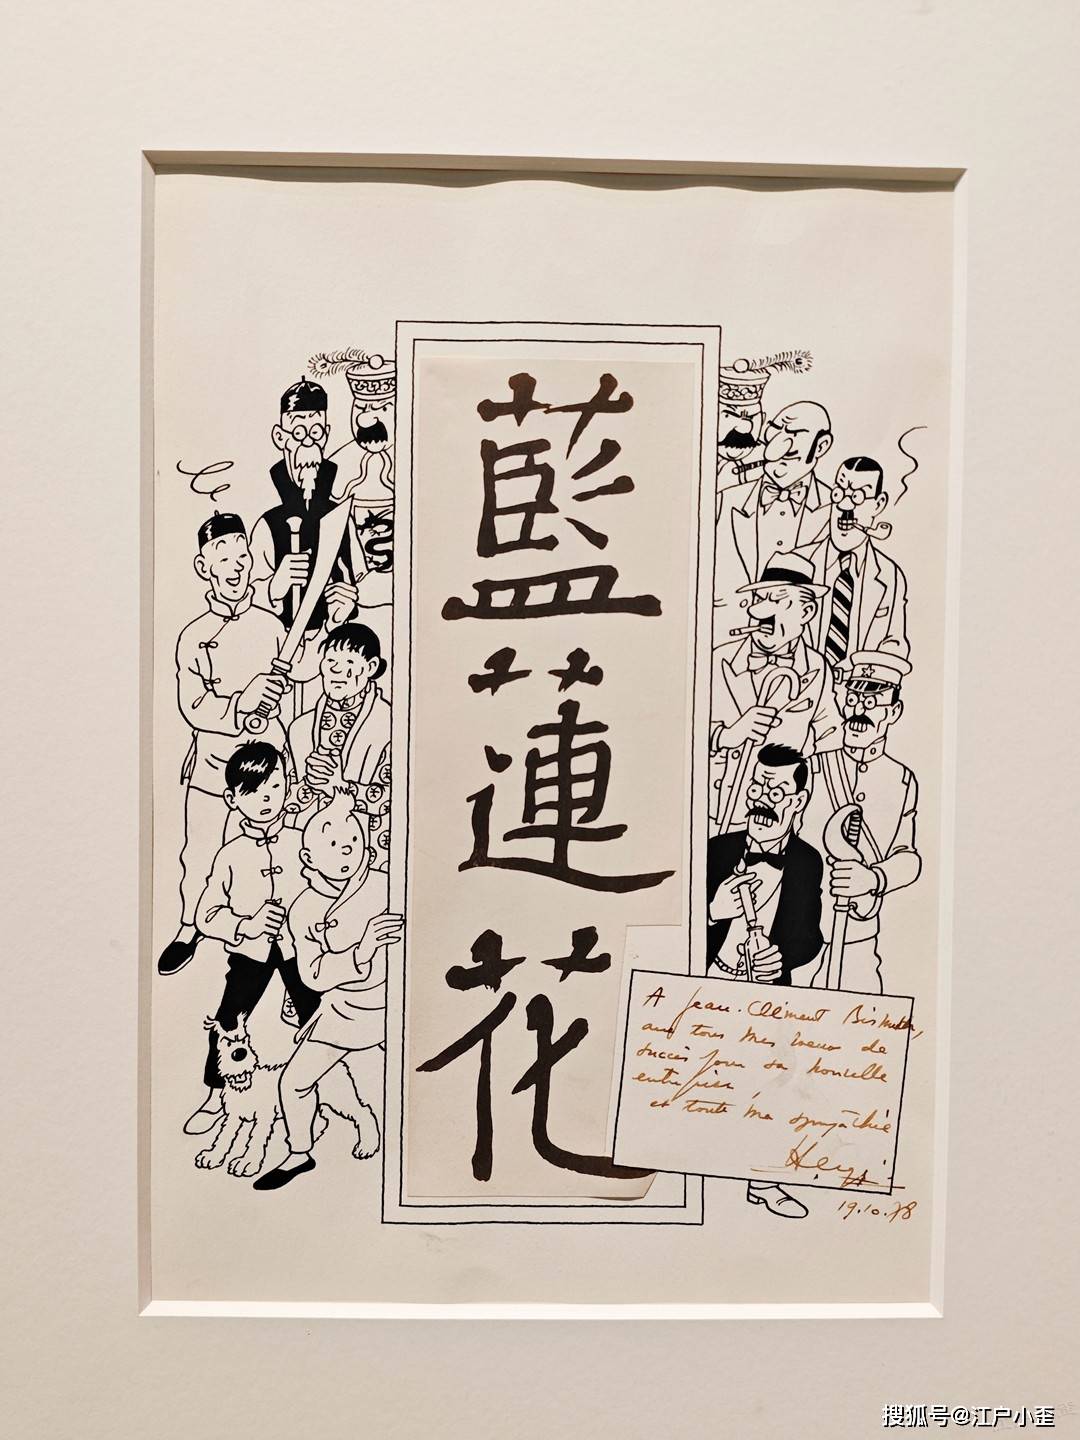 藍蓮花
A Jean-Clément Bismuth,
avec tous mes vœux de
succès pour sa nouvelle
entreprise,
et toute ma sympathie
Hergé
19.10.78
搜狐号@江户小歪